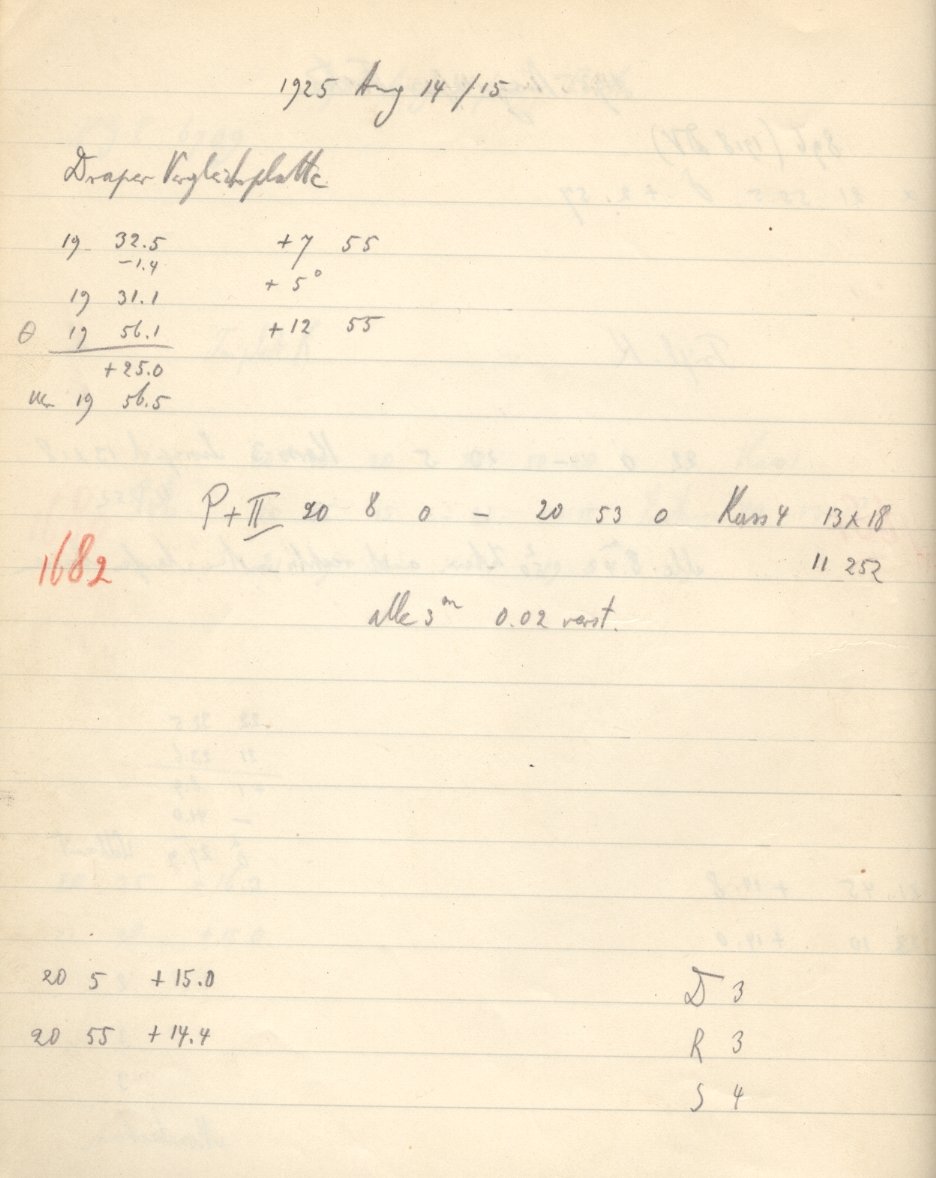 1925 Aug 14/15
Draper Vergleichsplatte
19 32.5 +7 55
-1.4
+5°
19 31.1
θ 19 56.1 +12 55
+25.0
19 56.5
P+II 20 8 0 - 20 53 0 Kass 4 13x18
1682 11 252
alle 3m 0.02 verst.
20 5 +15.0
D 3
20 55 +14.4
R 3
S 4